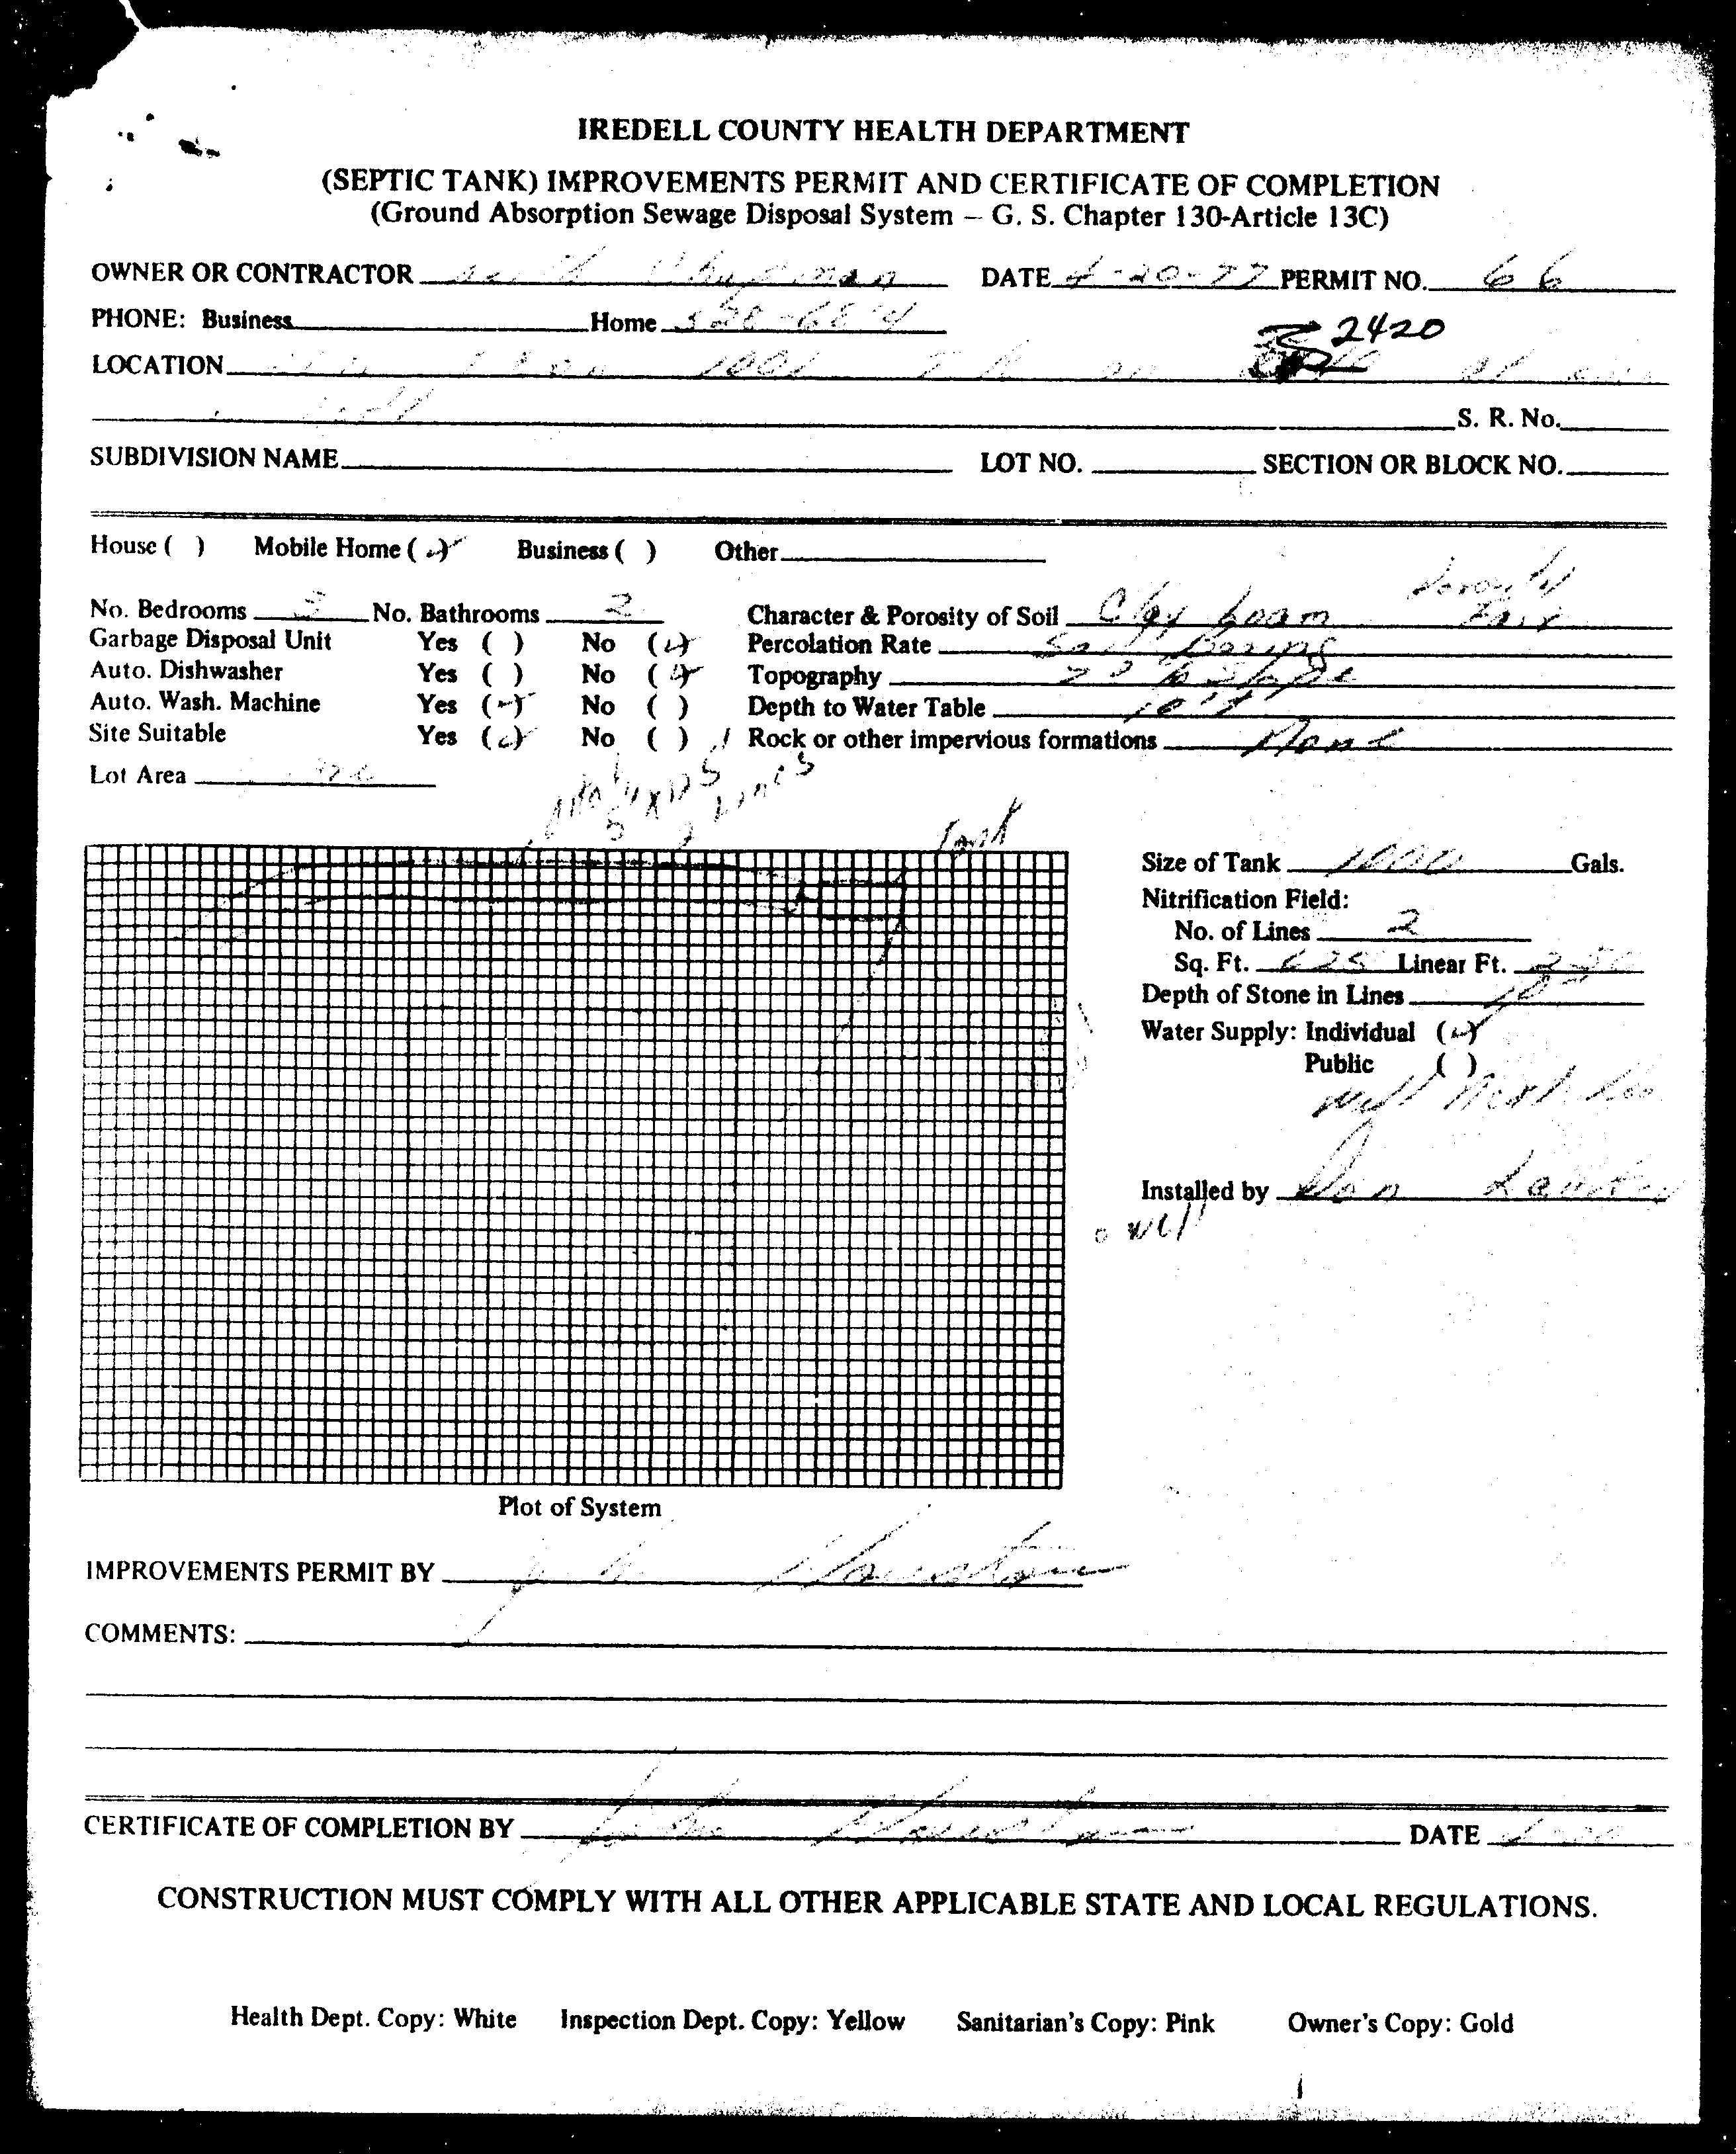 IREDELL COUNTY HEALTH DEPARTMENT
(SEPTIC TANK) IMPROVEMENTS PERMIT AND CERTIFICATE OF COMPLETION
(Ground Absorption Sewage Disposal System – G. S. Chapter 130-Article 13C)
OWNER OR CONTRACTOR Chapman DATE 4-20-77 PERMIT NO. 66
PHONE: Business Home
2420
LOCATION 1001 on
S. R. No.
SUBDIVISION NAME LOT NO. SECTION OR BLOCK NO.
House ( ) Mobile Home (✓) Business ( ) Other
No. Bedrooms 3 No. Bathrooms 2 Character & Porosity of Soil Clay Loam Fair
Garbage Disposal Unit Yes ( ) No (✓) Percolation Rate Borings
Auto. Dishwasher Yes ( ) No (✓) Topography
Auto. Wash. Machine Yes (✓) No ( ) Depth to Water Table 10'+
Site Suitable Yes (✓) No ( ) Rock or other impervious formations None
Lot Area
Lines
Tank
Size of Tank 1000 Gals.
Nitrification Field:
No. of Lines 2
Sq. Ft. 625 Linear Ft. 250
Depth of Stone in Lines 10"
Water Supply: Individual (✓)
Public ( )
well
Installed by Don
well
Plot of System
IMPROVEMENTS PERMIT BY Houston
COMMENTS:
CERTIFICATE OF COMPLETION BY Houston DATE
CONSTRUCTION MUST COMPLY WITH ALL OTHER APPLICABLE STATE AND LOCAL REGULATIONS.
Health Dept. Copy: White Inspection Dept. Copy: Yellow Sanitarian's Copy: Pink Owner's Copy: Gold